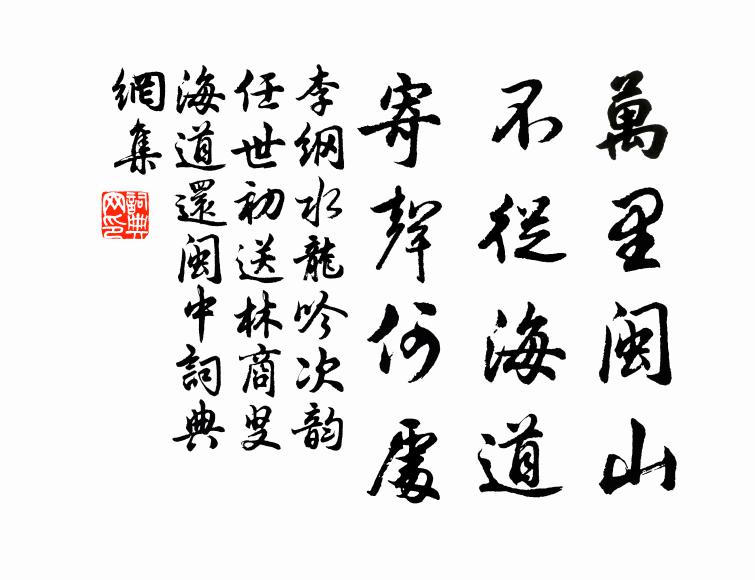 萬里閩山
不從海道
寄聲何處
李綱水龍吟次韵
任世初送林商叟
海道還閩中詞典
網集
詞典
网印